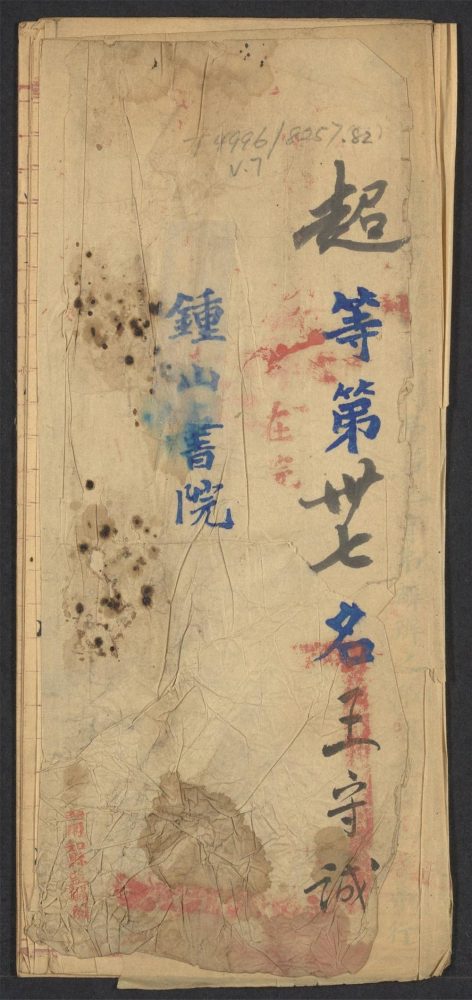 T 4996/8257.82)
V.7
超等第卅七名王守誠
鍾山書院